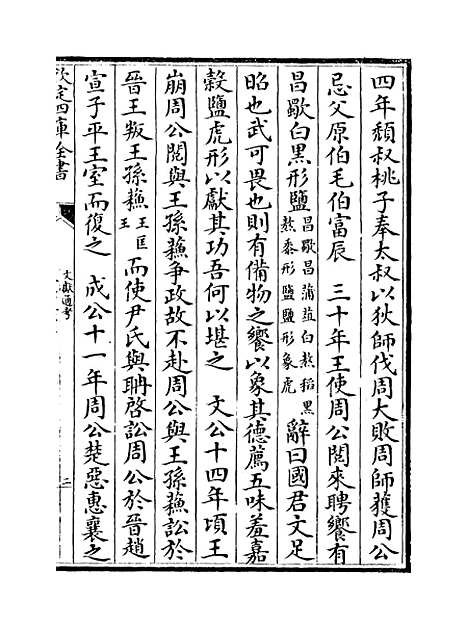 四年頹叔桃子奉太叔以狄師伐周大敗周師獲周公
忌父原伯毛伯富辰　三十年王使周公閲來聘饗有
昌歜白黑形鹽昌歜昌蒲葅白熬稻黑熬黍形鹽鹽形象虎辭曰國君文足
昭也武可畏也則有備物之饗以象其德薦五味羞嘉
榖鹽虎形以獻其功吾何以堪之　文公十四年頃王
崩周公閲與王孫蘇争政故不赴周公與王孫蘇訟於
晉王叛王孫蘇王匡王而使尹氏與聃啓訟周公於晉趙
宣子平王室而復之　成公十一年周公楚惡惠襄之
欽定四庫全書
文獻通考
三